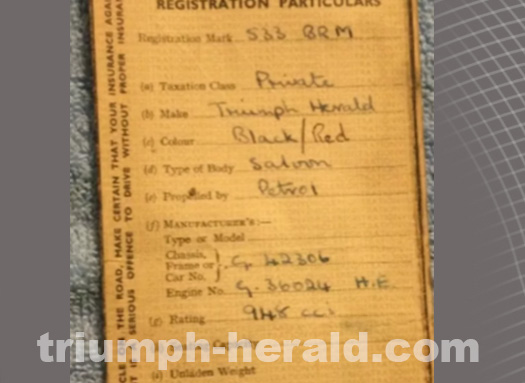 REGISTRATION PARTICULARS
Registration Mark 533 BRM
(a) Taxation Class Private
(b) Make Triumph Herald
(c) Colour Black/Red
(d) Type of Body Saloon
(e) Propelled by Petrol
(f) MANUFACTURER'S:—
Type or Model
Chassis,
Frame or
Car No. G. 42306
Engine No. G. 36024 H.E.
(g) Rating 948 cc
triumph-herald.com
(i) Unladen Weight
CLE ON THE ROAD, MAKE CERTAIN THAT YOUR INSURANCE AGAI
T IS SERIOUS OFFENCE TO DRIVE WITHOUT PROPER INSURAN